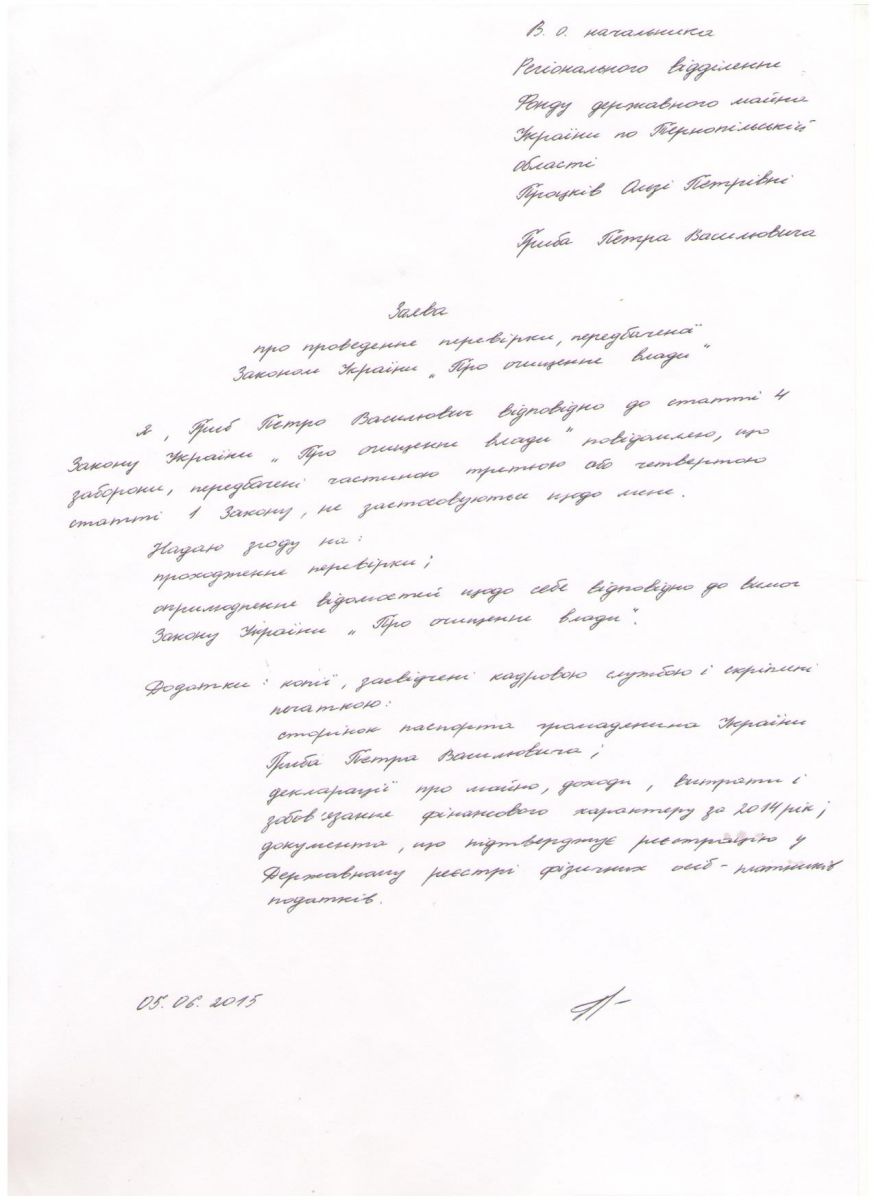 В. о. начальника
Регіонального відділення
Фонду державного майна
України по Тернопільській
області
Процків Ользі Петрівні
Гриба Петра Васильовича
Заява
про проведення перевірки, передбаченої
Законом України „Про очищення влади"
Я, Гриб Петро Васильович відповідно до статті 4
Закону України „Про очищення влади" повідомляю, що
заборони, передбачені частиною третьою або четвертою
статті 1 Закону, не застосовуються щодо мене.
Надаю згоду на:
проходження перевірки;
оприлюднення відомостей щодо себе відповідно до вимог
Закону України „Про очищення влади".
Додатки: копії, засвідчені кадровою службою і скріплені
печаткою:
сторінок паспорта громадянина України
Гриба Петра Васильовича;
декларації про майно, доходи, витрати і
зобов'язання фінансового характеру за 2014 рік;
документа, що підтверджує реєстрацію у
Державному реєстрі фізичних осіб-платників
податків.
05.06.2015